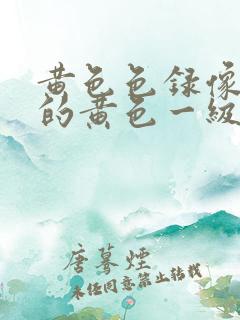 黄色色录像
的黄色一级
唐蓦烟
未经同意禁止转载